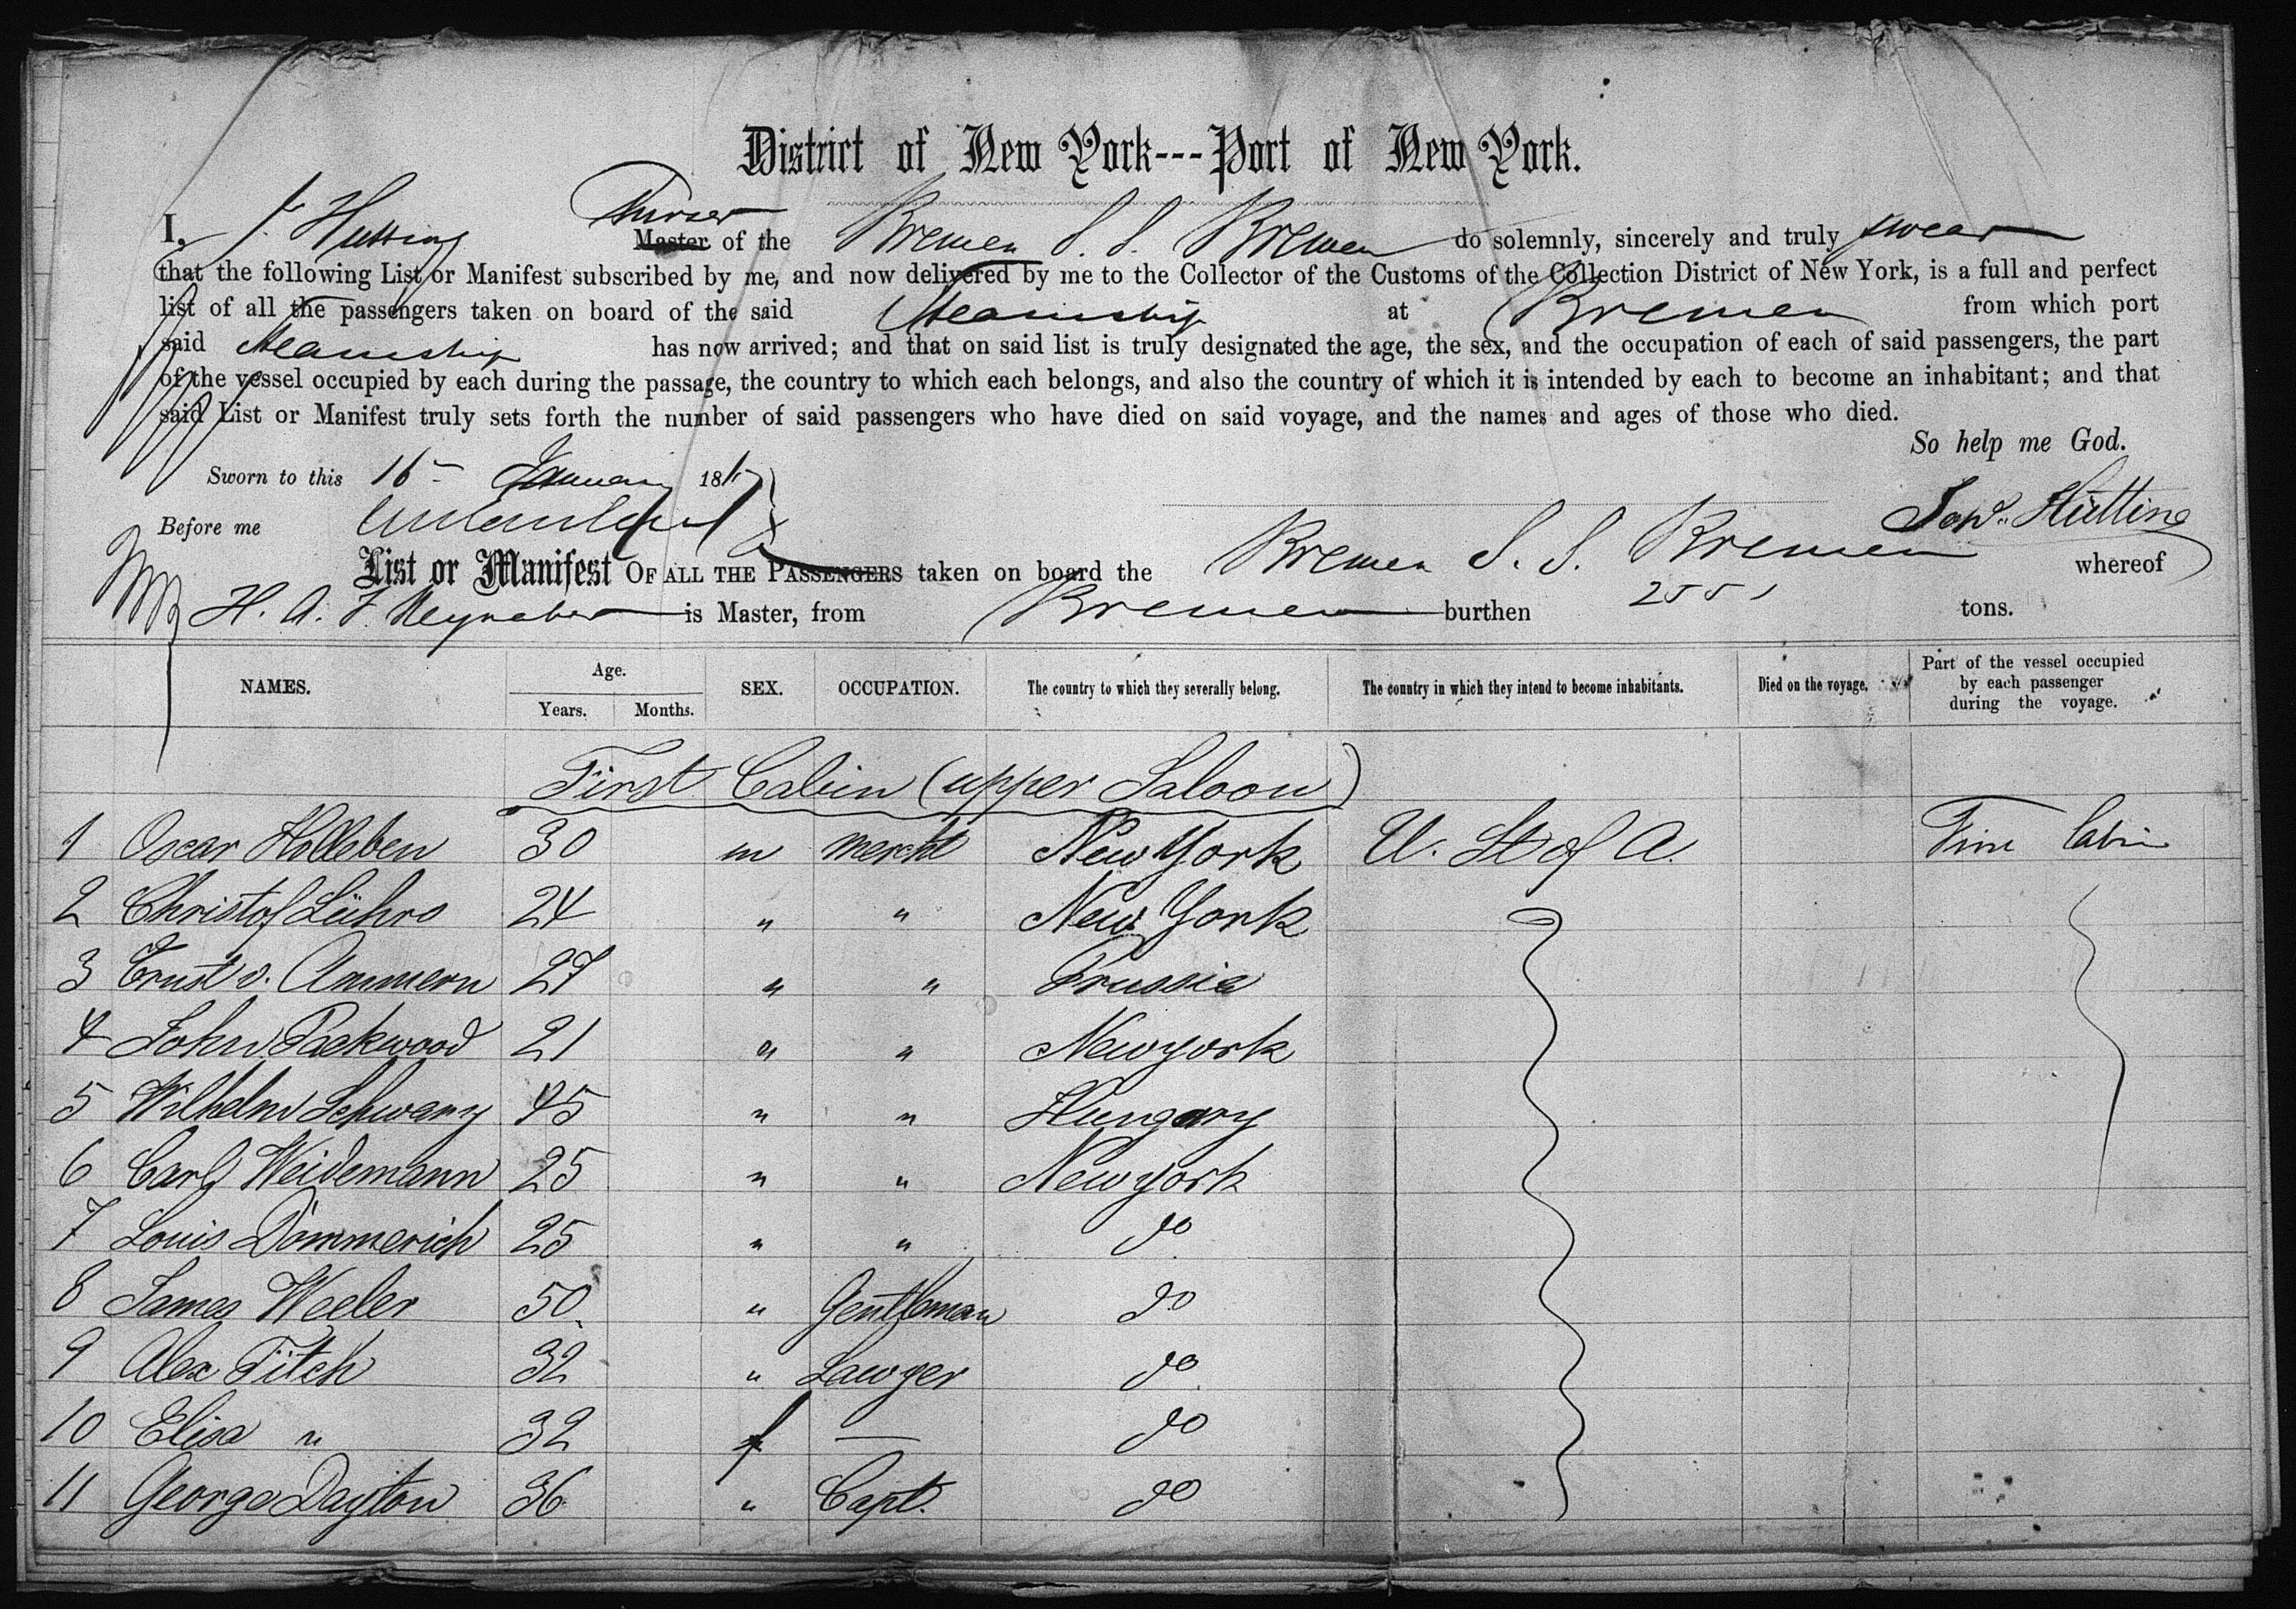 District of New York---Port of New York.
I, J. Hutting Purser Master of the Bremen S. S. Bremen do solemnly, sincerely and truly swear
that the following List or Manifest subscribed by me, and now delivered by me to the Collector of the Customs of the Collection District of New York, is a full and perfect
list of all the passengers taken on board of the said Steamship at Bremen from which port
said Steamship has now arrived; and that on said list is truly designated the age, the sex, and the occupation of each of said passengers, the part
of the vessel occupied by each during the passage, the country to which each belongs, and also the country of which it is intended by each to become an inhabitant; and that
said List or Manifest truly sets forth the number of said passengers who have died on said voyage, and the names and ages of those who died.
So help me God.
Sworn to this 16 January 18
Before me
Joh. Hütting
List or Manifest OF ALL THE PASSENGERS taken on board the Bremen S. S. Bremen whereof
H. A. F. Neynaber is Master, from Bremen burthen 2551 tons.
NAMES. Age. Years. Months. SEX. OCCUPATION. The country to which they severally belong. The country in which they intend to become inhabitants. Died on the voyage. Part of the vessel occupied by each passenger during the voyage.
First Cabin (upper Saloon)
1 Oscar Holleben 30 m mercht New York U. St of A. Firs Cabin
2 Christof Lührs 24 " " New York
3 Ernst v. Ammern 27 " " Prussia
4 John Packwood 21 " " New york
5 Wilhelm Schwarz 45 " " Hungary
6 Carl Weidemann 25 " " New york
7 Louis Dommerich 25 " " do
8 James Weeler 50 " Gentleman do
9 Alex Fitch 32 " Lawyer do
10 Elisa " 32 f — do
11 George Dayton 36 " Capt. do